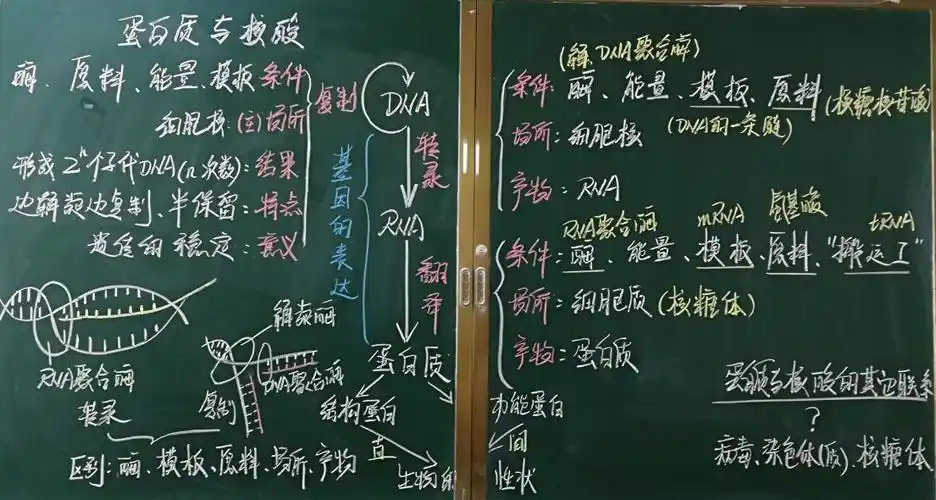 蛋白质与核酸
酶、原料、能量、模板 条件
细胞核:(主)场所
形成2ⁿ个子代DNA(n次数):结果
边解旋边复制、半保留:特点
遗传的稳定:意义
复制
DNA
转录
RNA
翻译
蛋白质
基因的表达
RNA聚合酶
转录
解旋酶
DNA聚合酶
复制
区别:酶、模板、原料、场所、产物
结构蛋白
功能蛋白
直
间
生物的
性状
(解、DNA聚合酶)
条件:酶、能量、模板、原料(核糖核苷酸)
(DNA的一条链)
场所:细胞核
产物:RNA
RNA聚合酶 mRNA 氨基酸 tRNA
条件:酶、能量、模板、原料、“搬运工”
场所:细胞质(核糖体)
产物:蛋白质
蛋白质与核酸的其它联系
?
病毒、染色体(质)、核糖体